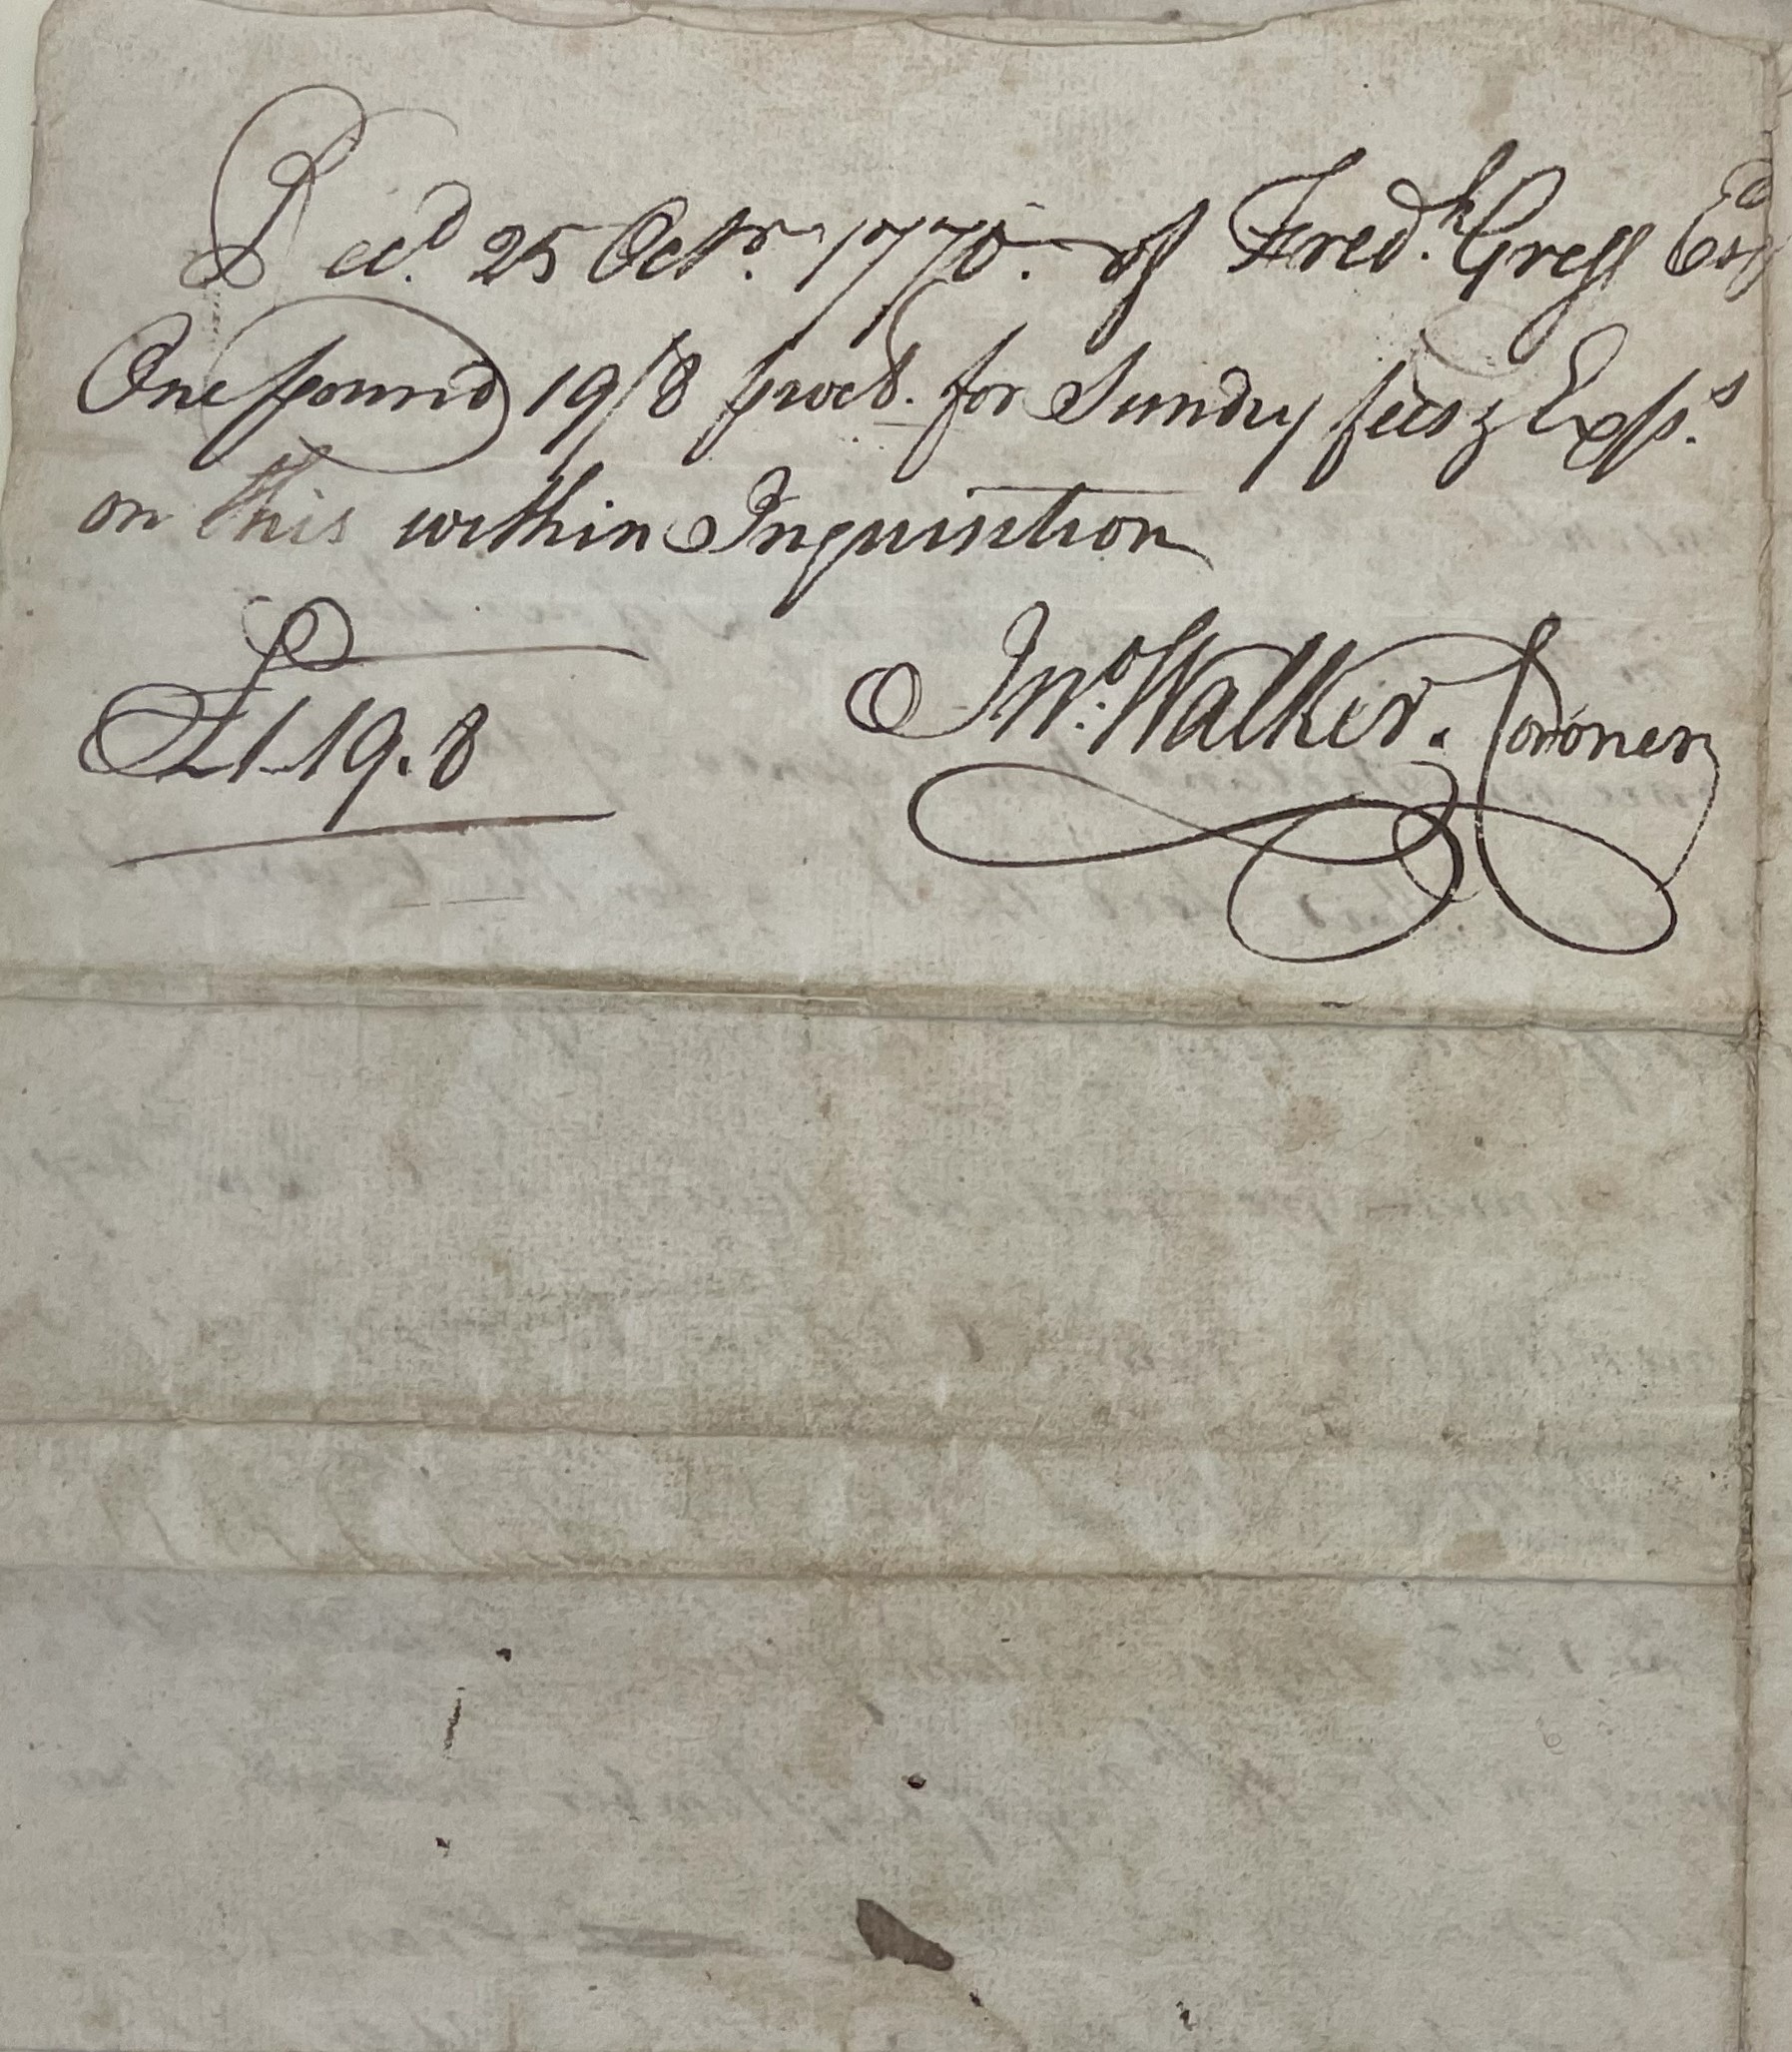 Recd. 25 Octr. 1770. of Fredk. Gregg Esqr
One pound 19/8 proc.d. for Sundry fees & Exps.
on this within Inquisition
£1.19.8
Jno. Walker. Coroner